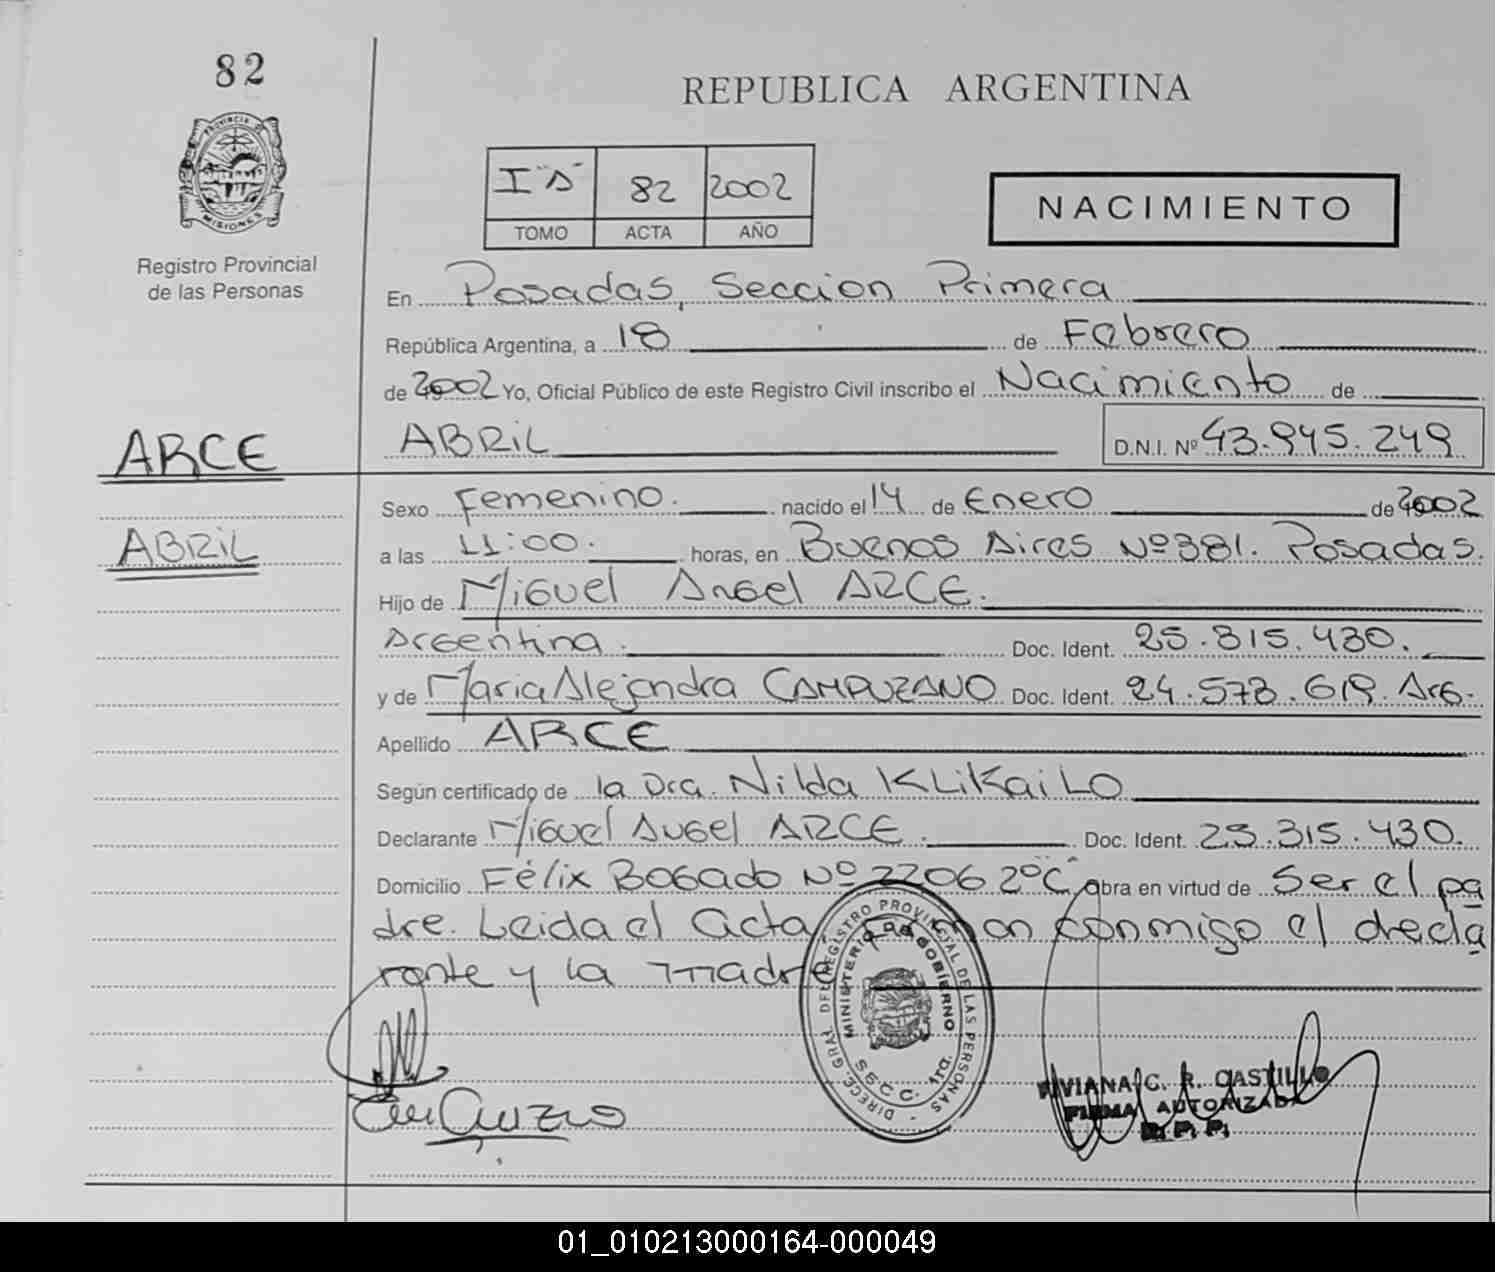 82
PROVINCIA DE
MISIONES
Registro Provincial
de las Personas
REPUBLICA ARGENTINA
82 2002
TOMO ACTA AÑO
NACIMIENTO
En Posadas, Seccion Primera
República Argentina, a 18 de Febrero
de 2002 Yo, Oficial Público de este Registro Civil inscribo el Nacimiento de
ARCE
ABRIL D.N.I. Nº 43.945.249
Sexo Femenino. nacido el 14 de Enero de 2002
ABRIL
a las 11:00. horas, en Buenos Aires Nº 381. Posadas.
Hijo de Miguel Angel ARCE.
Argentina. Doc. Ident. 25.315.430.
y de Maria Alejandra CAMPUZANO Doc. Ident. 24.573.619. Arg.
Apellido ARCE
Según certificado de la Dra. Nilda KLiKaiLO
Declarante Miguel Angel ARCE. Doc. Ident. 25.315.430.
Domicilio Félix Bogado Nº 2206 2º C obra en virtud de Ser el pa
dre. Leida el acta conmigo el decla
rante y la madre
DIRECC. GRAL. DEL REGISTRO PROVINCIAL DE LAS PERSONAS
MINISTERIO DE GOBIERNO
SECC. 1ra.
VIVIANA C. R. CASTILLO
FIRMA AUTORIZADA
R. P. P.
01_010213000164-000049